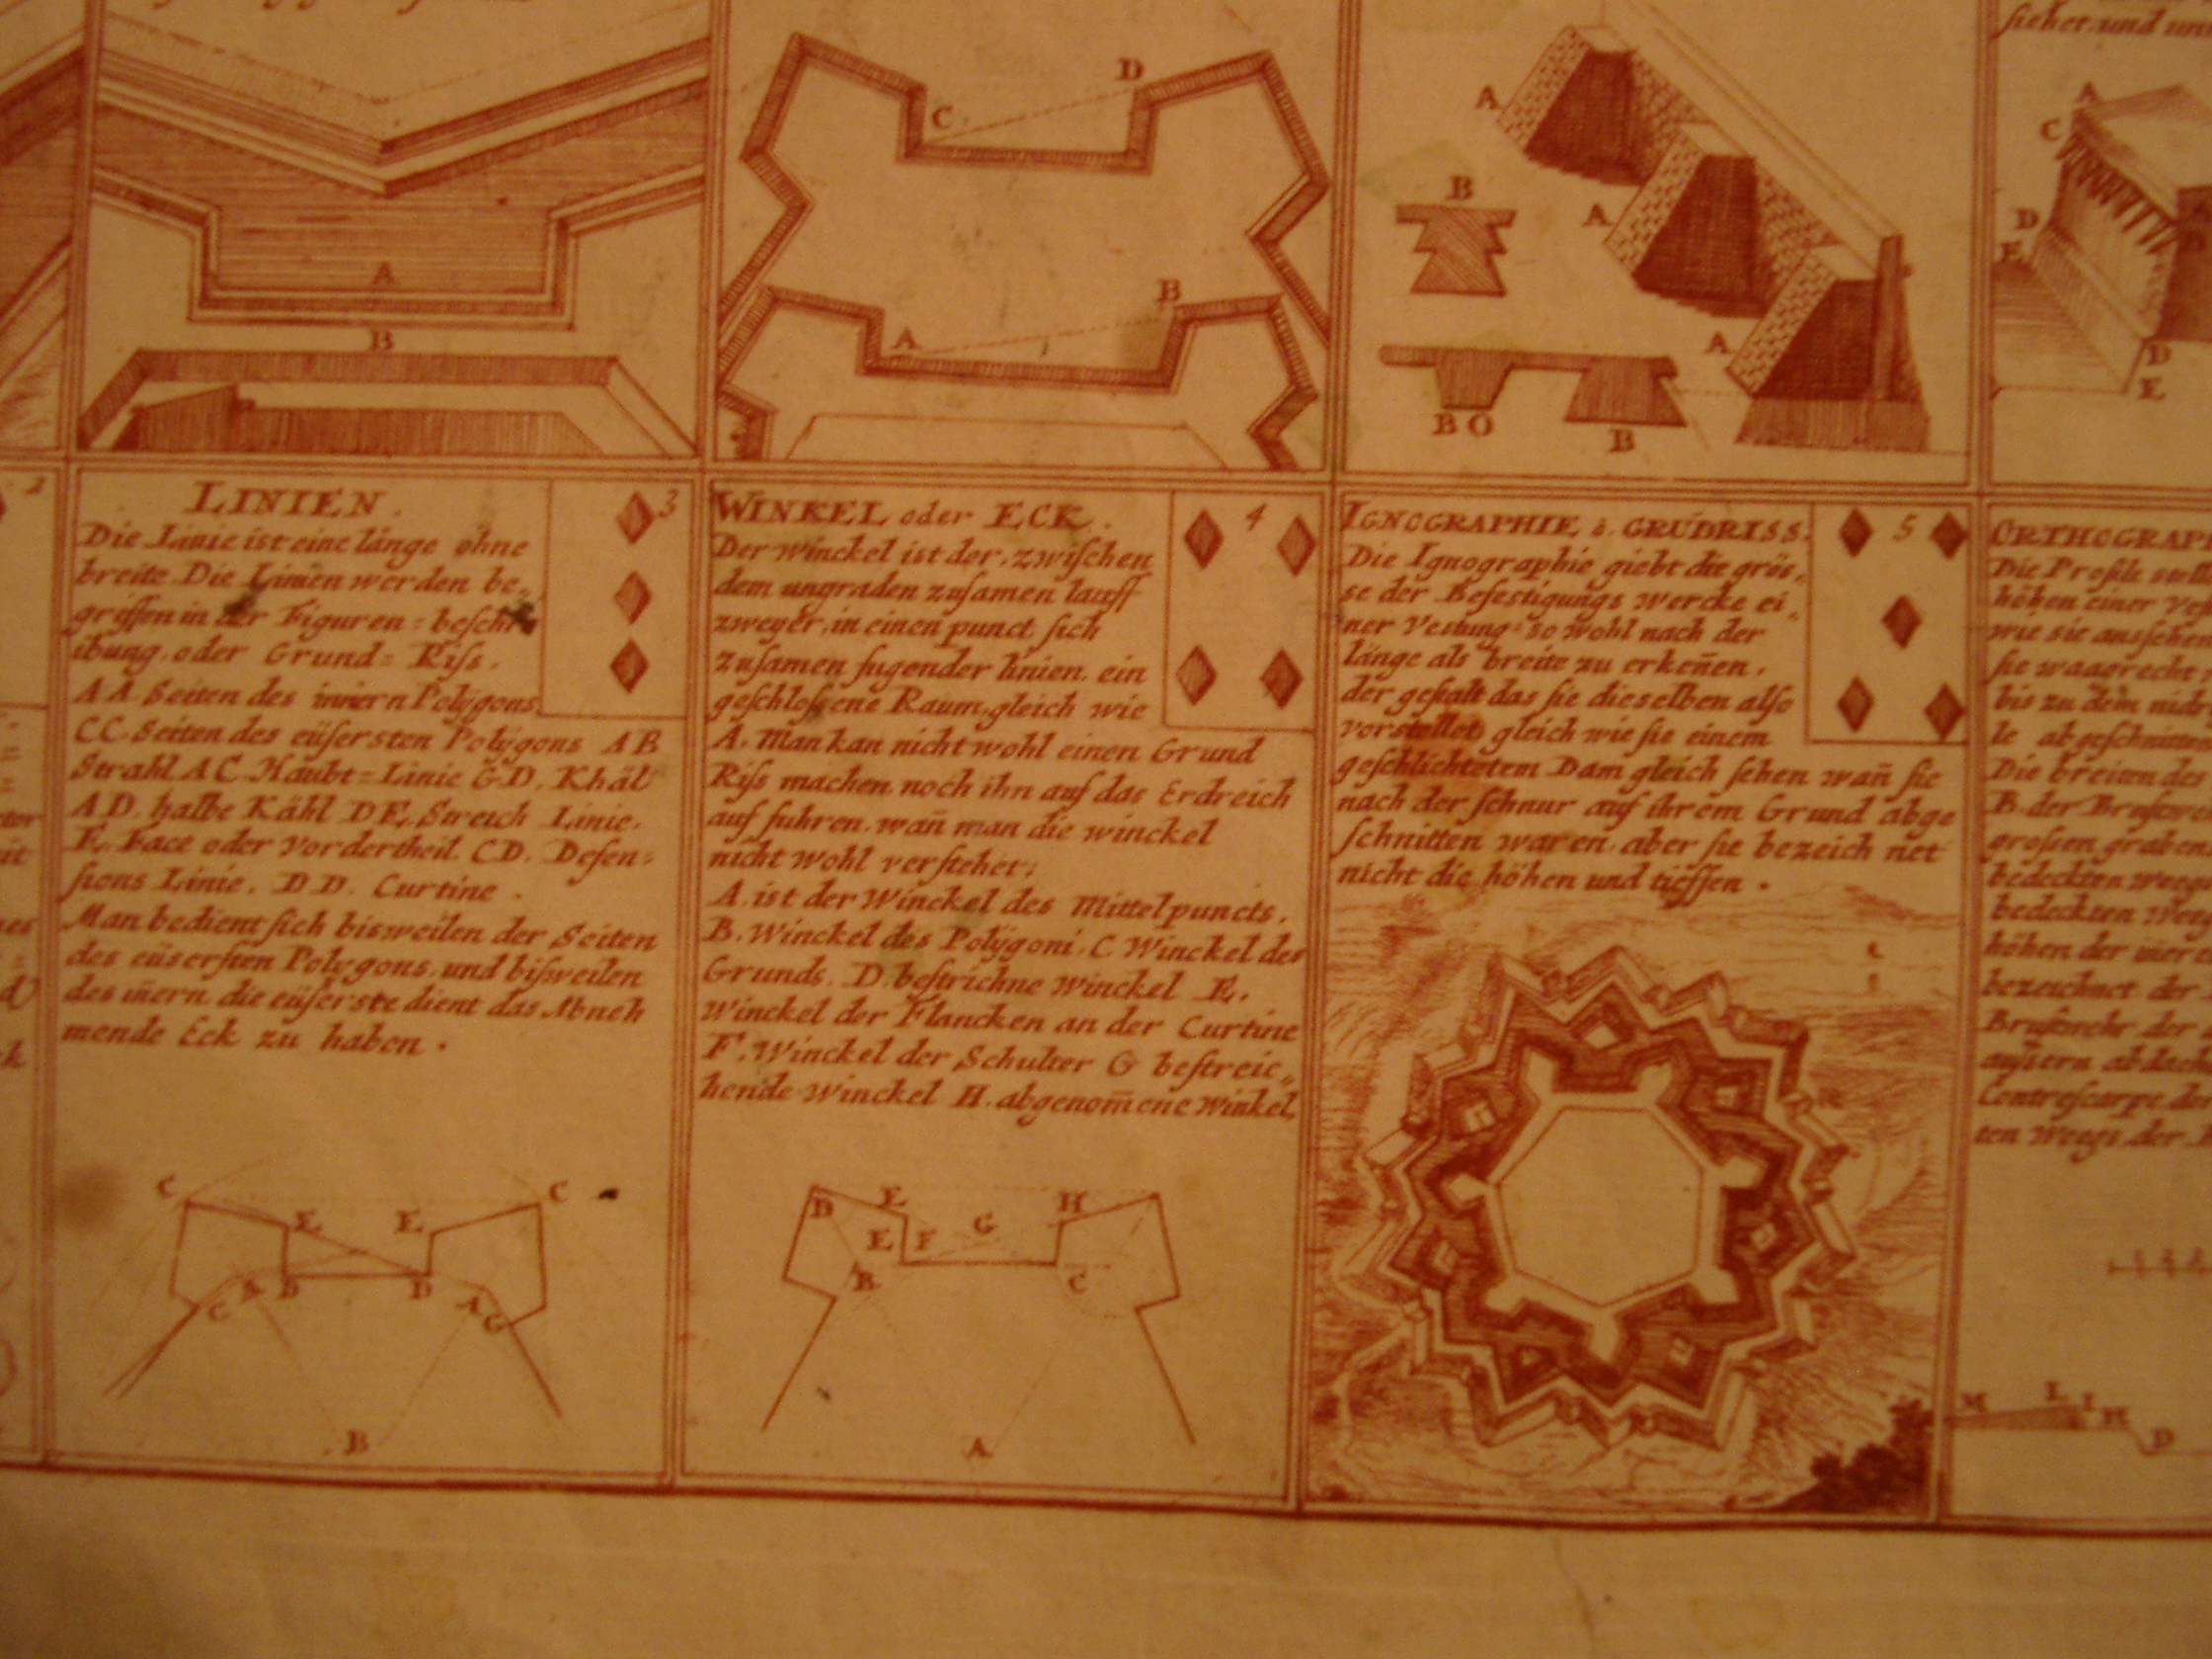 sieher, und
C
D
A
B
A
B
A
A
A
B
B O
B
A
C
D
E
D
E
2
LINIEN.
3
Die Linie ist eine länge ohne
breite Die Linien werden be„
griffen in der Figuren = beschr
ibung, oder Grund = Riss.
A A Seiten des innern Polÿgons
C C. Seiten des eüsersten Polÿgons A B
Strahl A C. Haubt = Linie G. D. Khäl
A D. halbe Kähl D E. Streich Linie.
E. Face oder Vordertheil. C D. Defen=
sions Linie. D. D. Curtine.
Man bedient sich bisweilen der Seiten
des eüsersten Polygons, und bisweilen
des iñern, die eüserste dient das Abneh
mende Eck zu haben.
C
C
E
E
A
D
D
A
G
G
B
WINKEL oder ECK.
4
Der winckel ist der, zwischen
dem ungraden zusamen lauff
zweyer, in einen punct, sich
zusamen fugender linien, ein
geschlossene Raum, gleich wie
A. Man kan nicht wohl einen Grund
Riss machen, noch ihn auf das Erdreich
auf fuhren, wañ man die winckel
nicht wohl verstehet;
A. ist der Winckel des Mittelpuncts.
B. Winckel des Polÿgoni. C. Winckel des
Grunds. D. bestrichne winckel E.
winckel der Flancken an der Curtine
F. Winckel der Schulter G bestreic„
hende Winckel H. abgenom̃ene Winkel.
D
E
E
F
G
H
B
C
A
IGNOGRAPHIE, o. GRUDRISS.
5
Die Ignographie giebt die grös„
se der Befestigungs wercke ei„
ner Vestung so wohl nach der
länge als breite zu erkeñen,
der gestalt das sie dieselben also
vorstellet, gleich wie sie einem
geschlichtetem Dam gleich sehen wañ sie
nach der schnur auf ihrem Grund abge
schnitten waren, aber sie bezeich net
nicht die höhen und tieffen.
ORTHOGRAP
Die Profile
höhen einer
wie sie aussehen
sie waagrecht,
bis zu dem
le abgeschnitten
Die breiten des
B. der
grossen graben
bedeckten weegs
bedeckten
höhen der
bezeichnet der
Brustwehr der
aussern abdach
Contrescarpe,
ten Weegs, der
M
L
I
H
D